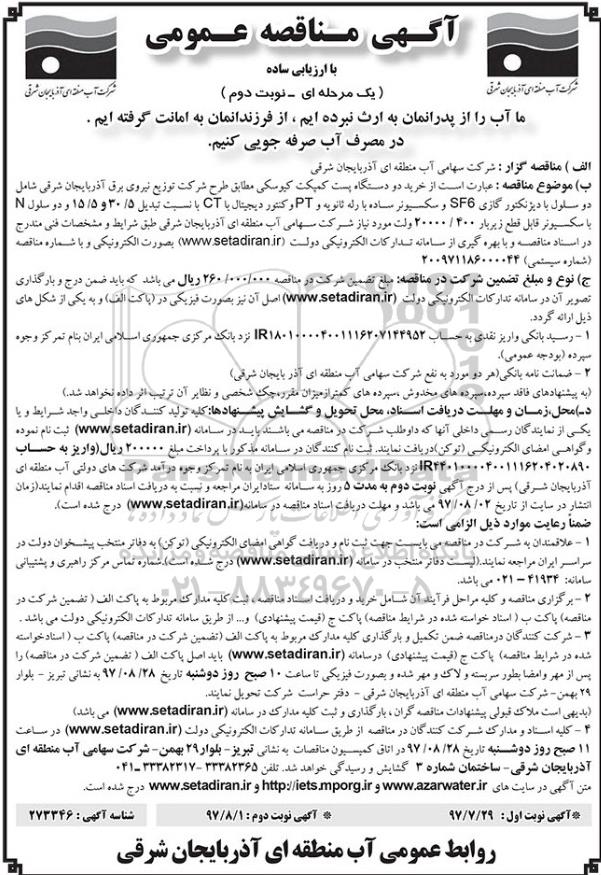 آگـهی مـناقصه عـمومی
شرکت آب منطقه ای آذربایجان شرقی
شرکت آب منطقه ای آذربایجان شرقی
با ارزیابی ساده
( یک مرحله ای - نوبت دوم )
ما آب را از پدرانمان به ارث نبرده ایم ، از فرزندانمان به امانت گرفته ایم .
در مصرف آب صرفه جویی کنیم.
الف ) مناقصه گزار : شرکت سهامی آب منطقه ای آذربایجان شرقی
ب) موضوع مناقصه : عبارت است از خرید دو دستگاه پست کمپکت کیوسکی مطابق طرح شرکت توزیع نیروی برق آذربایجان شرقی شامل
دو سلول با دیژنکتور گازی SF6 و سکسیونر ساده با رله ثانویه و PT وکنتور دیجیتال با CT با نسبت تبدیل ۳۰/۵ و ۱۵/۵ و دو سلول N
با سکسیونر قابل قطع زیربار ۲۰۰۰۰/۴۰۰ ولت مورد نیاز شرکت سهامی آب منطقه ای آذربایجان شرقی طبق شرایط و مشخصات فنی مندرج
در اسناد مناقصه و با بهره گیری از سامانه تدارکات الکترونیکی دولت (www.setadiran.ir) بصورت الکترونیکی و با شماره مناقصه
(شماره سیستمی) ۲۰۰۹۷۱۱۸۶۰۰۰۰۴۴
ج) نوع و مبلغ تضمین شرکت در مناقصه: مبلغ تضمین شرکت در مناقصه ۲۶۰/۰۰۰/۰۰۰ ریال می باشد که باید ضمن درج و بارگذاری
تصویر آن در سامانه تدارکات الکترونیکی دولت (www.setadiran.ir) اصل آن نیز بصورت فیزیکی در (پاکت الف) و به یکی از شکل های
ذیل ارائه گردد.
۱ - رسید بانکی واریز نقدی به حساب IR۱۸۰۱۰۰۰۰۴۰۰۱۱۱۶۲۰۷۱۴۴۹۵۲ نزد بانک مرکزی جمهوری اسلامی ایران بنام تمرکز وجوه
سپرده (بودجه عمومی).
۲ - ضمانت نامه بانکی(هر دو مورد به نفع شرکت سهامی آب منطقه ای آذر بایجان شرقی)
(به پیشنهادهای فاقد سپرده،سپرده های مخدوش ،سپرده های کمترازمیزان مقرر،چک شخصی و نظایر آن ترتیب اثر داده نخواهد شد.)
د-)محل،زمان و مهلت دریافت اسناد، محل تحویل و گشایش پیشنهادها:کلیه تولید کنندگان داخلی واجد شرایط و یا
یکی از نمایندگان رسمی داخلی آنها که داوطلب شرکت در مناقصه می باشند باید در سامانه (www.setadiran.ir) ثبت نام نموده
و گواهی امضای الکترونیکی (توکن)دریافت نمایند. ثبت نام کنندگان در سامانه مذکور با پرداخت مبلغ ۲۰۰۰۰۰ ریال(واریز به حساب
IR۴۴۰۱۰۰۰۰۴۰۰۱۱۱۶۲۰۴۰۲۰۸۹۰ نزد بانک مرکزی جمهوری اسلامی ایران به نام تمرکز وجوه درآمد شرکت های دولتی آب منطقه ای
آذربایجان شرقی) پس از درج آگهی نوبت دوم به مدت ۵ روز به سامانه ستادایران مراجعه و نسبت به دریافت اسناد مناقصه اقدام نمایند(زمان
انتشار در سایت از تاریخ ۹۷/۰۸/۰۲ می باشد و مهلت دریافت اسناد مناقصه در سامانه(www.setadiran.ir) درج شده است).
ضمناً رعایت موارد ذیل الزامی است:
۱ - علاقمندان به شرکت در مناقصه می بایست جهت ثبت نام و دریافت گواهی امضای الکترونیکی (توکن) به دفاتر منتخب پیشخوان دولت در
سراسر ایران مراجعه نمایند.(لیست دفاتر منتخب در سامانه (www.setadiran.ir) درج شده است).شماره تماس مرکز راهبری و پشتیبانی
سامانه: ۴۱۹۳۴ - ۰۲۱ می باشد.
۲ - برگزاری مناقصه و کلیه مراحل فرآیند آن شامل خرید و دریافت اسناد مناقصه ، ثبت کلیه مدارک مربوط به پاکت الف ( تضمین شرکت در
مناقصه) پاکت ب ( اسناد خواسته شده در شرایط مناقصه) پاکت ج (قیمت پیشنهادی) و... از طریق سامانه تدارکات الکترونیکی دولت می باشد .
۳ - شرکت کنندگان درمناقصه ضمن تکمیل و بارگذاری کلیه مدارک مربوط به پاکت الف (تضمین شرکت در مناقصه) پاکت ب ( اسنادخواسته
شده در شرایط مناقصه) پاکت ج (قیمت پیشنهادی) درسامانه (www.setadiran.ir) باید اصل پاکت الف ( تضمین شرکت در مناقصه) را
پس از مهر وامضا بطور سربسته و لاک و مهر شده و بصورت فیزیکی تا ساعت ۱۰ صبح روز دوشنبه تاریخ ۹۷/۰۸/۲۸ به نشانی تبریز - بلوار
۲۹ بهمن- شرکت سهامی آب منطقه ای آذربایجان شرقی - دفتر حراست شرکت تحویل نمایند.
(بدیهی است ملاک قبولی پیشنهادات مناقصه گران ، بارگذاری و ثبت کلیه مدارک در سامانه (www.setadiran.ir) می باشد)
۴ - کلیه اسناد و مدارک شرکت کنندگان در مناقصه از طریق سامانه تدارکات الکترونیکی دولت (www.setadiran.ir) در ساعت
۱۱ صبح روز دوشنبه تاریخ ۹۷/۰۸/۲۸ در اتاق کمیسیون مناقصات به نشانی تبریز- بلوار۲۹ بهمن- شرکت سهامی آب منطقه ای
آذربایجان شرقی- ساختمان شماره ۳ گشایش و رسیدگی خواهد شد. تلفن ۳۳۳۸۲۳۶۵ -۳۳۳۸۲۳۱۷-۰۴۱
متن آگهی در سایت های www.azarwater.ir و http://iets.mporg.ir و www.setadiran.ir درج شده است.
*آگهی نوبت اول: ۹۷/۷/۲۹ * آگهی نوبت دوم : ۹۷/۸/۱ شناسه آگهی : ۲۷۳۳۴۶
روابط عمومی آب منطقه ای آذربایجان شرقی